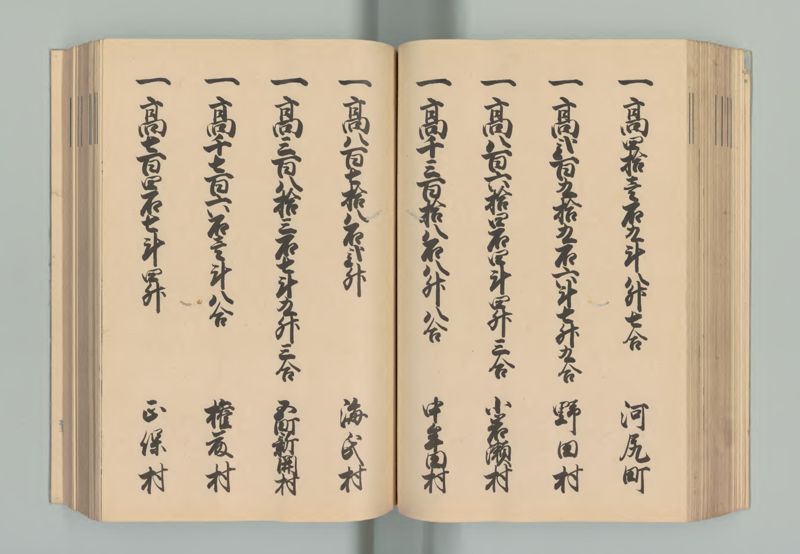 一高四拾壱石九斗八升七合 河尻町
一高弐百九拾九石六斗七升九合 野田村
一高八百六拾四石四斗四升三合 小岩瀬村
一高千三百拾八石八升八合 中牟田村
一高八百七拾八石弐升 海氏村
一高三百八拾三石七斗九升三合 五町新開村
一高千七百六石壱斗八合 権藤村
一高七百四石七斗四升 正保村